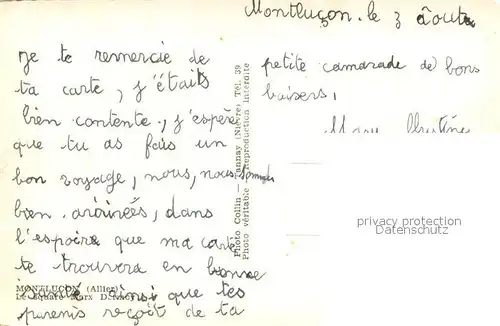 Montluçon. le 3 âout
je te remercie de
ta carte, j'étais
bien contente, j'espère
que tu as fais un
bon voyage, nous, nous sommes
bien arrivées, dans
l'espoire que ma carte
te trouvera en bonne
santé ainsi que tes
parents reçoit de ta
petite camarade de bons
baisers,
Photo Collin - Tannay (Nièvre) Tél. 39
Photo véritable - Reproduction interdite
MONTLUÇON (Allier)
Le Square Marx Dormoy
privacy protection
for Ansichtskarten-Center